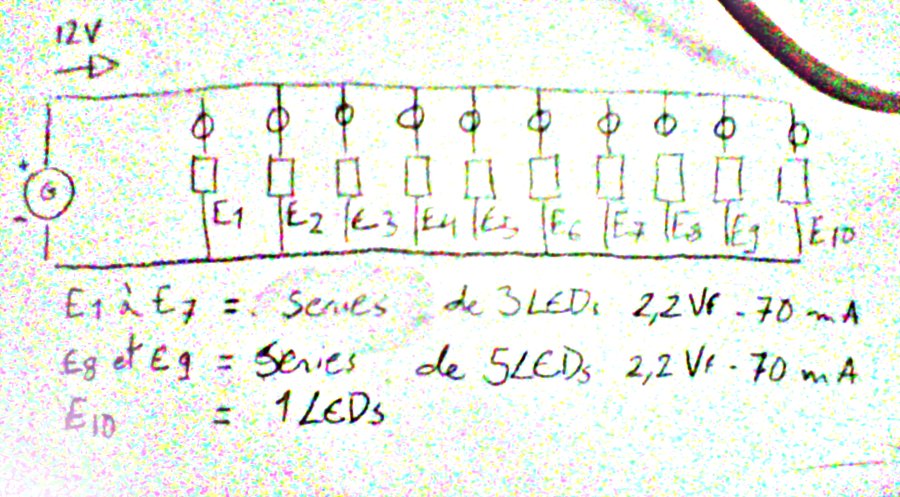 12V
+
G
-
E1 E2 E3 E4 E5 E6 E7 E8 E9 E10
E1 à E7 = Series de 3 LEDs 2,2 Vf - 70 mA
E8 et E9 = Series de 5 LEDs 2,2 Vf - 70 mA
E10 = 1 LEDs